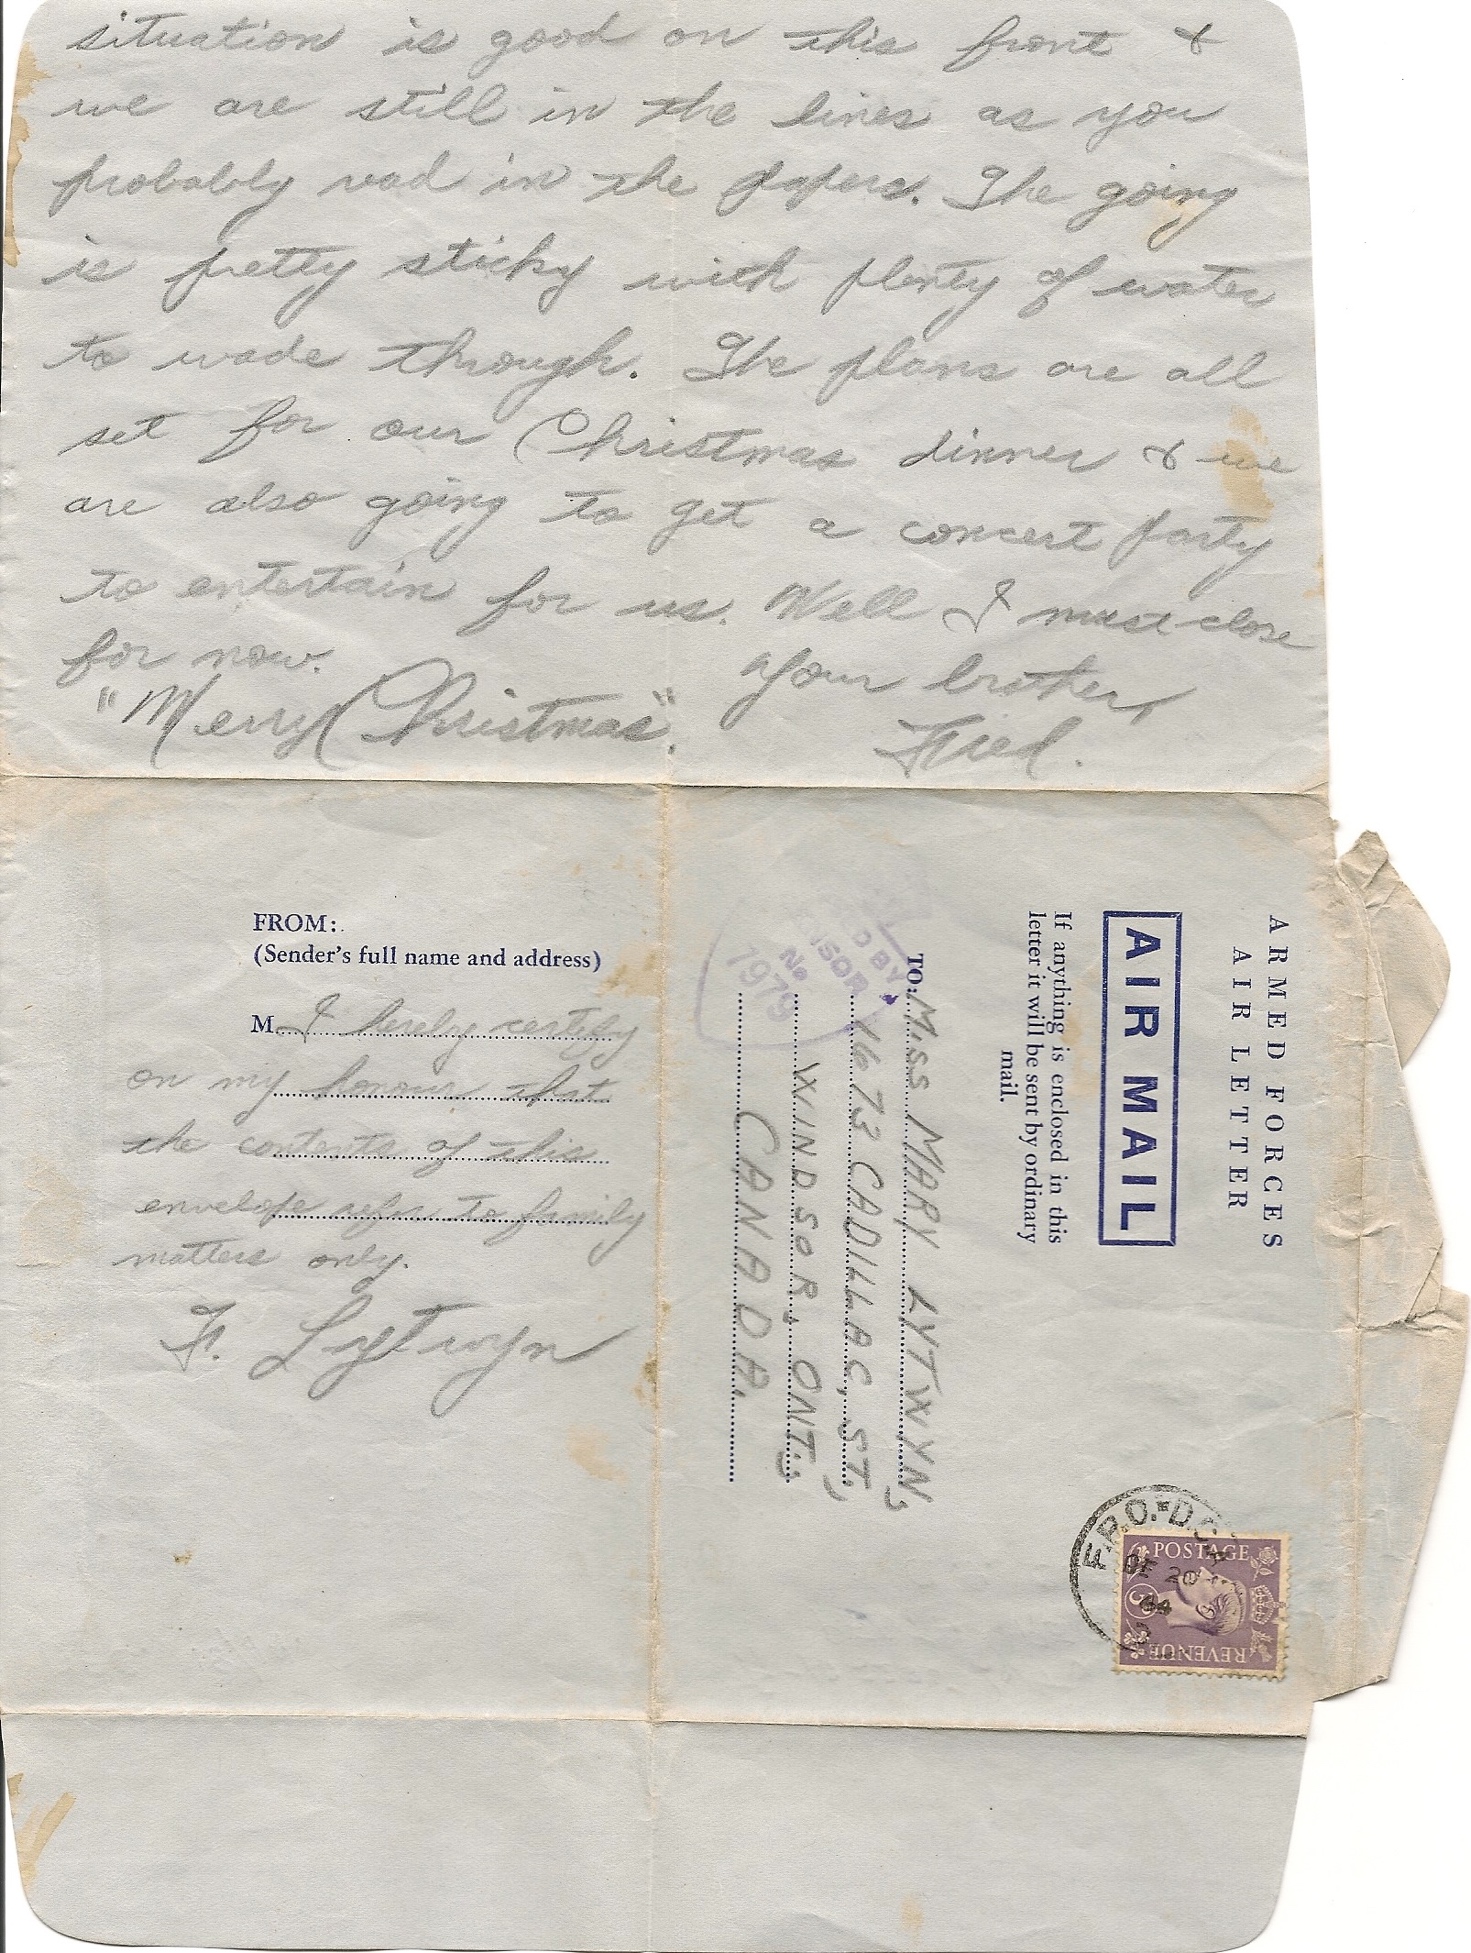 situation is good on this front &
we are still in the lines as you
probably read in the papers. The going
is pretty sticky with plenty of water
to wade through. The plans are all
set for our Christmas dinner & we
are also going to get a concert party
to entertain for us. Well I must close
for now.
Your brother,
"Merry Christmas".
Fred.
FROM:
(Sender's full name and address)
M. I hereby certify
on my honour that
the contents of this
envelope refer to family
matters only.
F. Lytwyn
ARMED FORCES
AIR LETTER
AIR MAIL
If anything is enclosed in this
letter it will be sent by ordinary
mail.
TO: MISS MARY LYTWYN,
1673 CADILLAC, ST,
WINDSOR, ONT,
CANADA.
ED BY
NSOR
No
1979
F.P.O.
DE 20
44
POSTAGE
3D
REVENUE